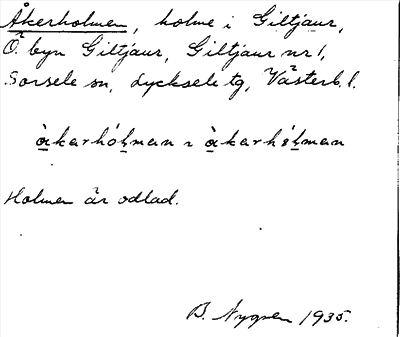 Åkerholmen, holme i Giltjaur,
Ö. byn Giltjaur, Giltjaur nr 1,
Sorsele sn, Lycksele tg, Västerb. l.
åkarhólman ~ åkarhólman
Holmen är odlad.
B. Nygren 1935.